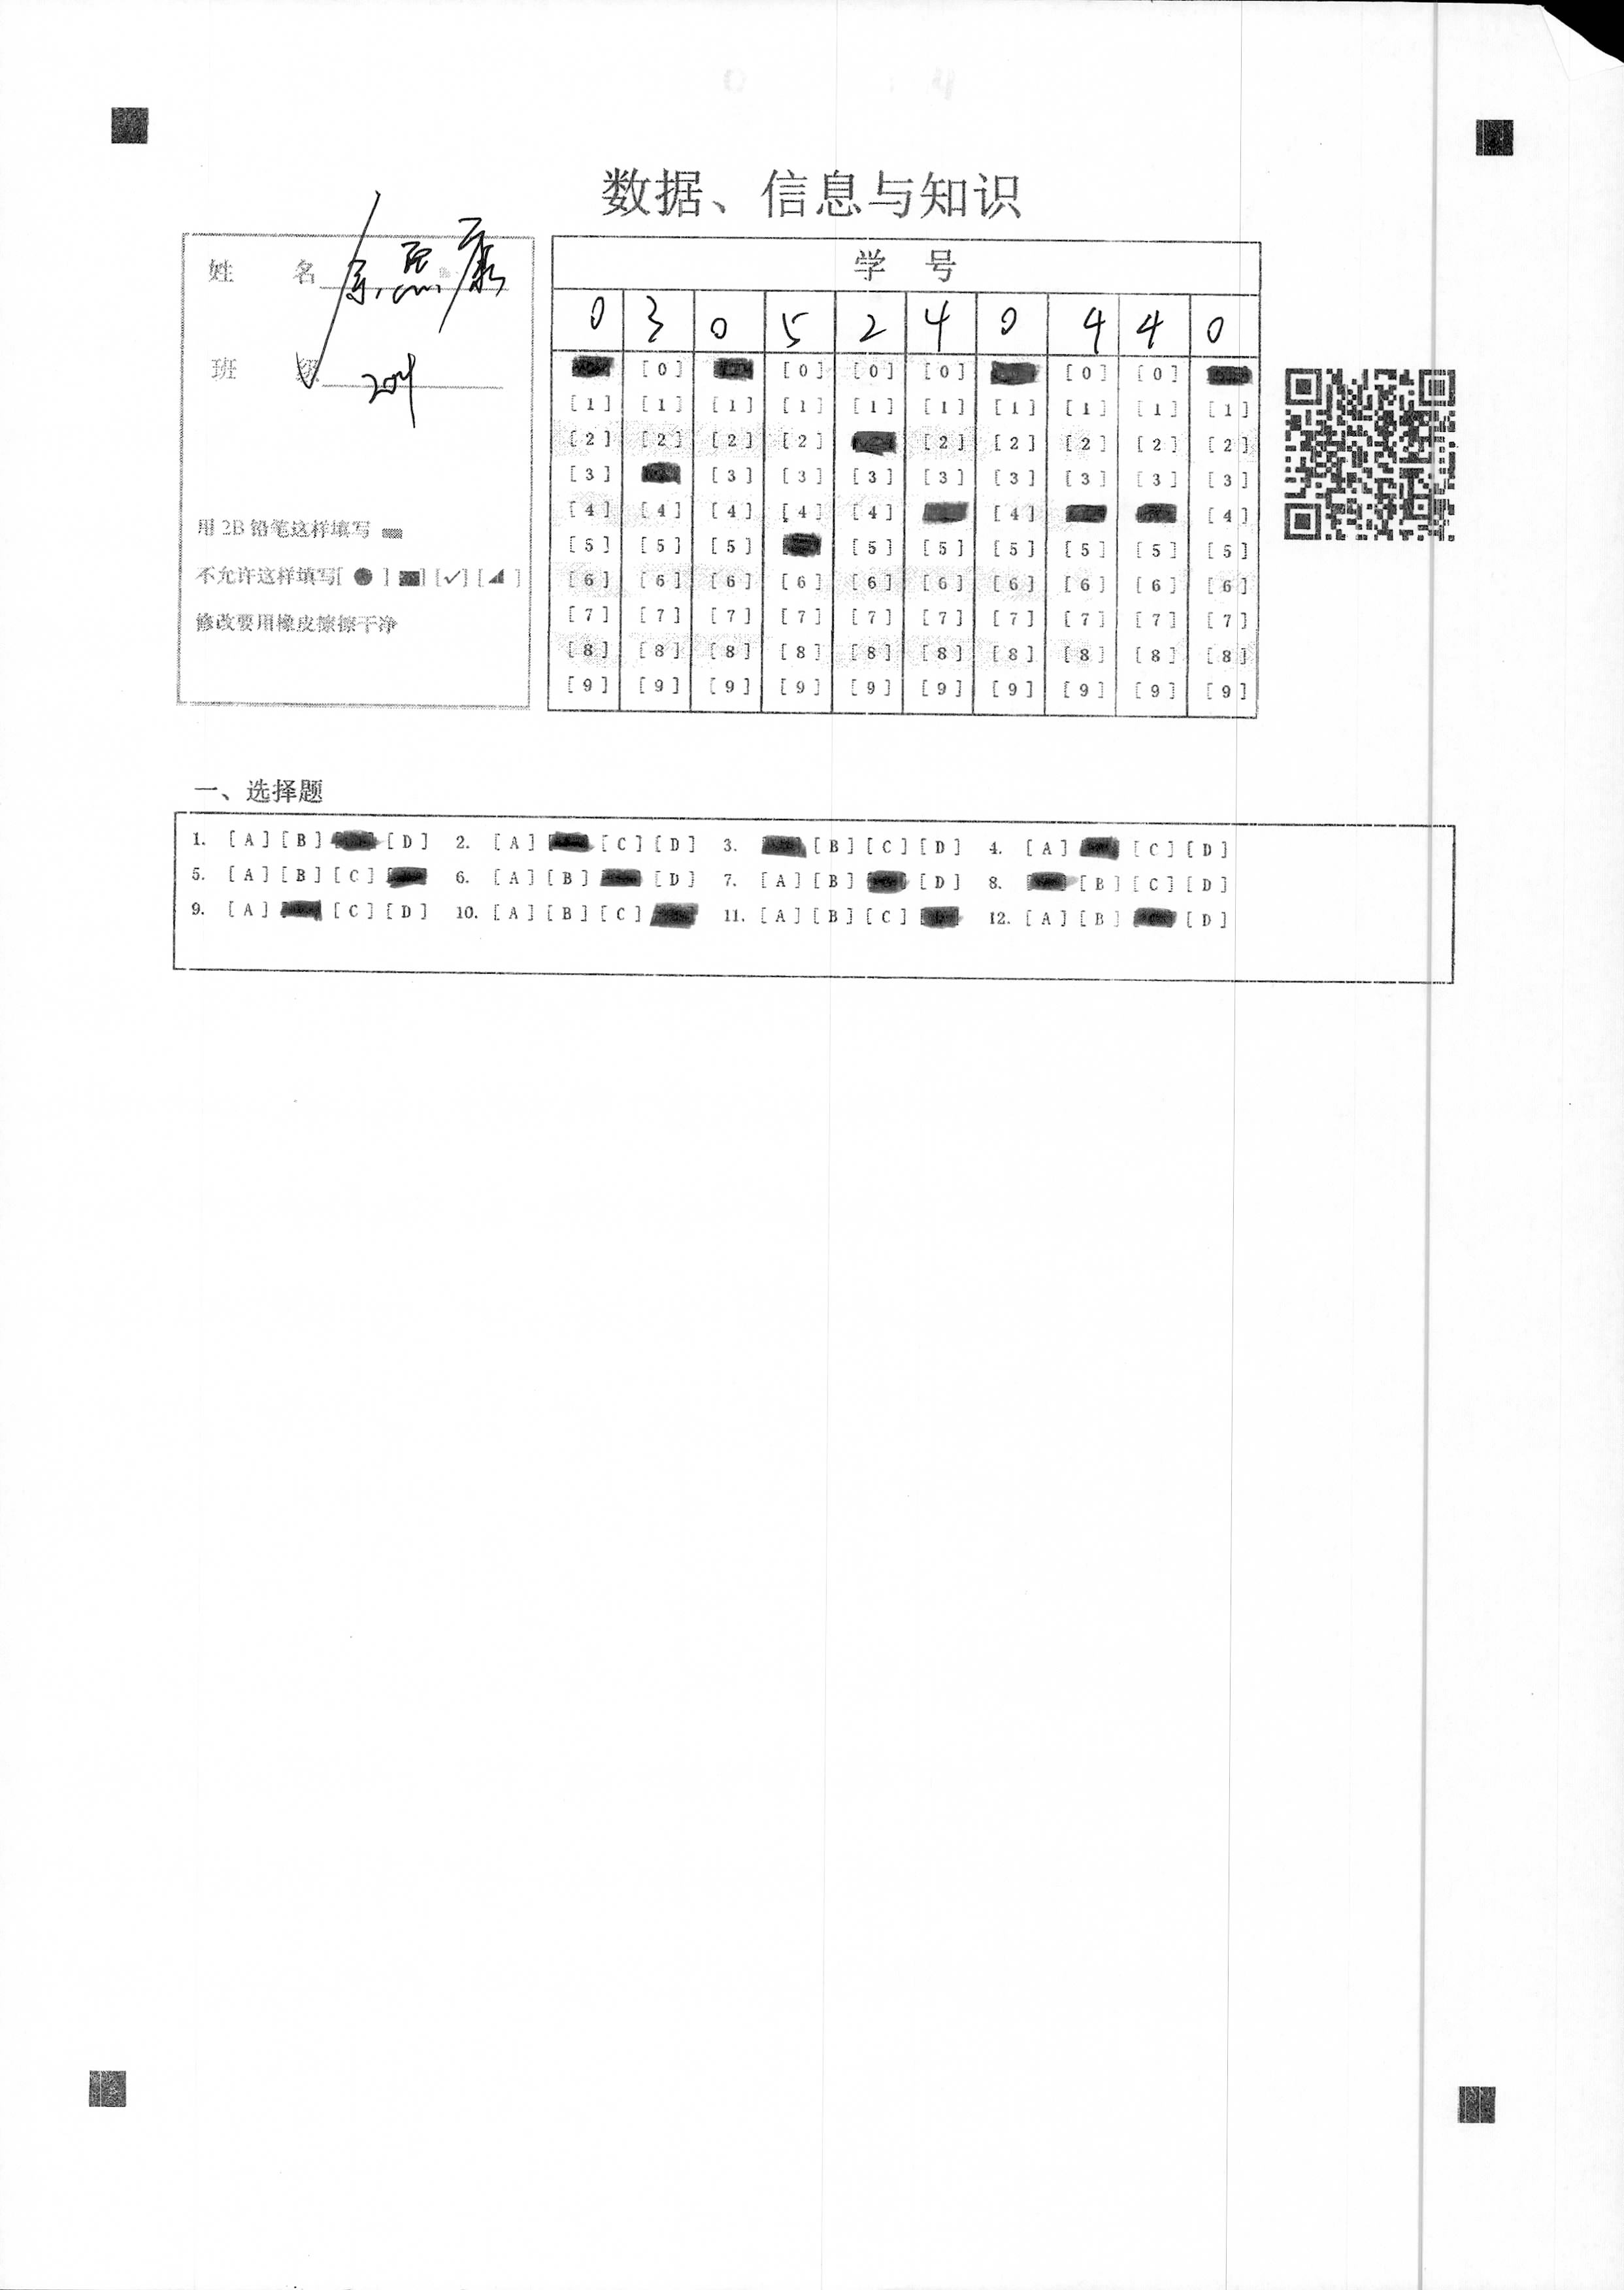 数据、信息与知识
姓 名
班 级 204
用2B铅笔这样填写
不允许这样填写[ ● ] [■] [✓] [◢ ]
修改要用橡皮擦擦干净
学 号
0 3 0 5 2 4 0 4 4 0
[0] [0] [0] [0] [0] [0]
[1] [1] [1] [1] [1] [1] [1] [1] [1] [1]
[2] [2] [2] [2] [2] [2] [2] [2] [2]
[3] [3] [3] [3] [3] [3] [3] [3] [3]
[4] [4] [4] [4] [4] [4] [4]
[5] [5] [5] [5] [5] [5] [5] [5] [5]
[6] [6] [6] [6] [6] [6] [6] [6] [6] [6]
[7] [7] [7] [7] [7] [7] [7] [7] [7] [7]
[8] [8] [8] [8] [8] [8] [8] [8] [8] [8]
[9] [9] [9] [9] [9] [9] [9] [9] [9] [9]
一、选择题
1. [A] [B] [D] 2. [A] [C] [D] 3. [B] [C] [D] 4. [A] [C] [D]
5. [A] [B] [C] 6. [A] [B] [D] 7. [A] [B] [D] 8. [B] [C] [D]
9. [A] [C] [D] 10. [A] [B] [C] 11. [A] [B] [C] 12. [A] [B] [D]